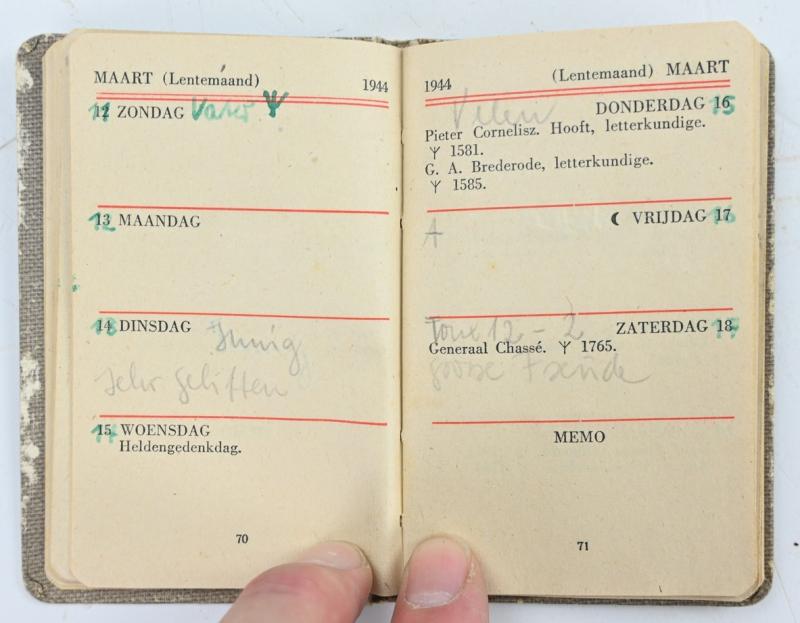 MAART (Lentemaand) 1944
12 ZONDAG Vater ᛉ
11
13 MAANDAG
12
14 DINSDAG
13
sehr gelitten
15 WOENSDAG
14
Heldengedenkdag.
70
1944 (Lentemaand) MAART
DONDERDAG 16
15
Pieter Cornelisz. Hooft, letterkundige.
ᛉ 1581.
G. A. Brederode, letterkundige.
ᛉ 1585.
☾ VRIJDAG 17
16
A
12 - 2 ZATERDAG 18
17
Generaal Chassé. ᛉ 1765.
Freude
MEMO
71